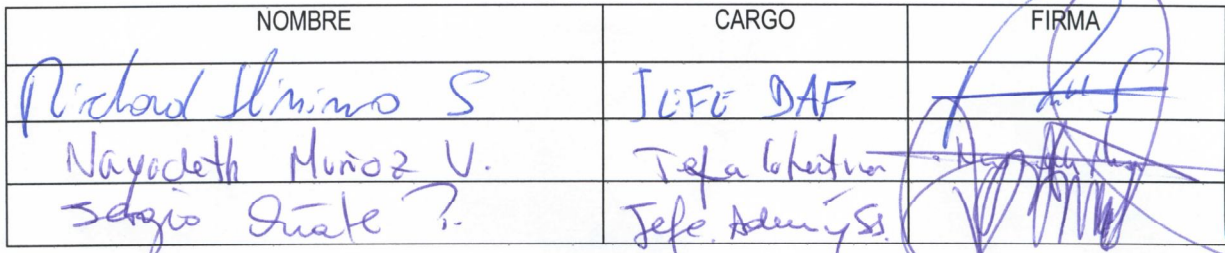 NOMBRE CARGO FIRMA
Richard S JEFE DAF
Nayadeth Muñoz V. Jefa
Sergio Oñate P. Jefe Adm y SS.